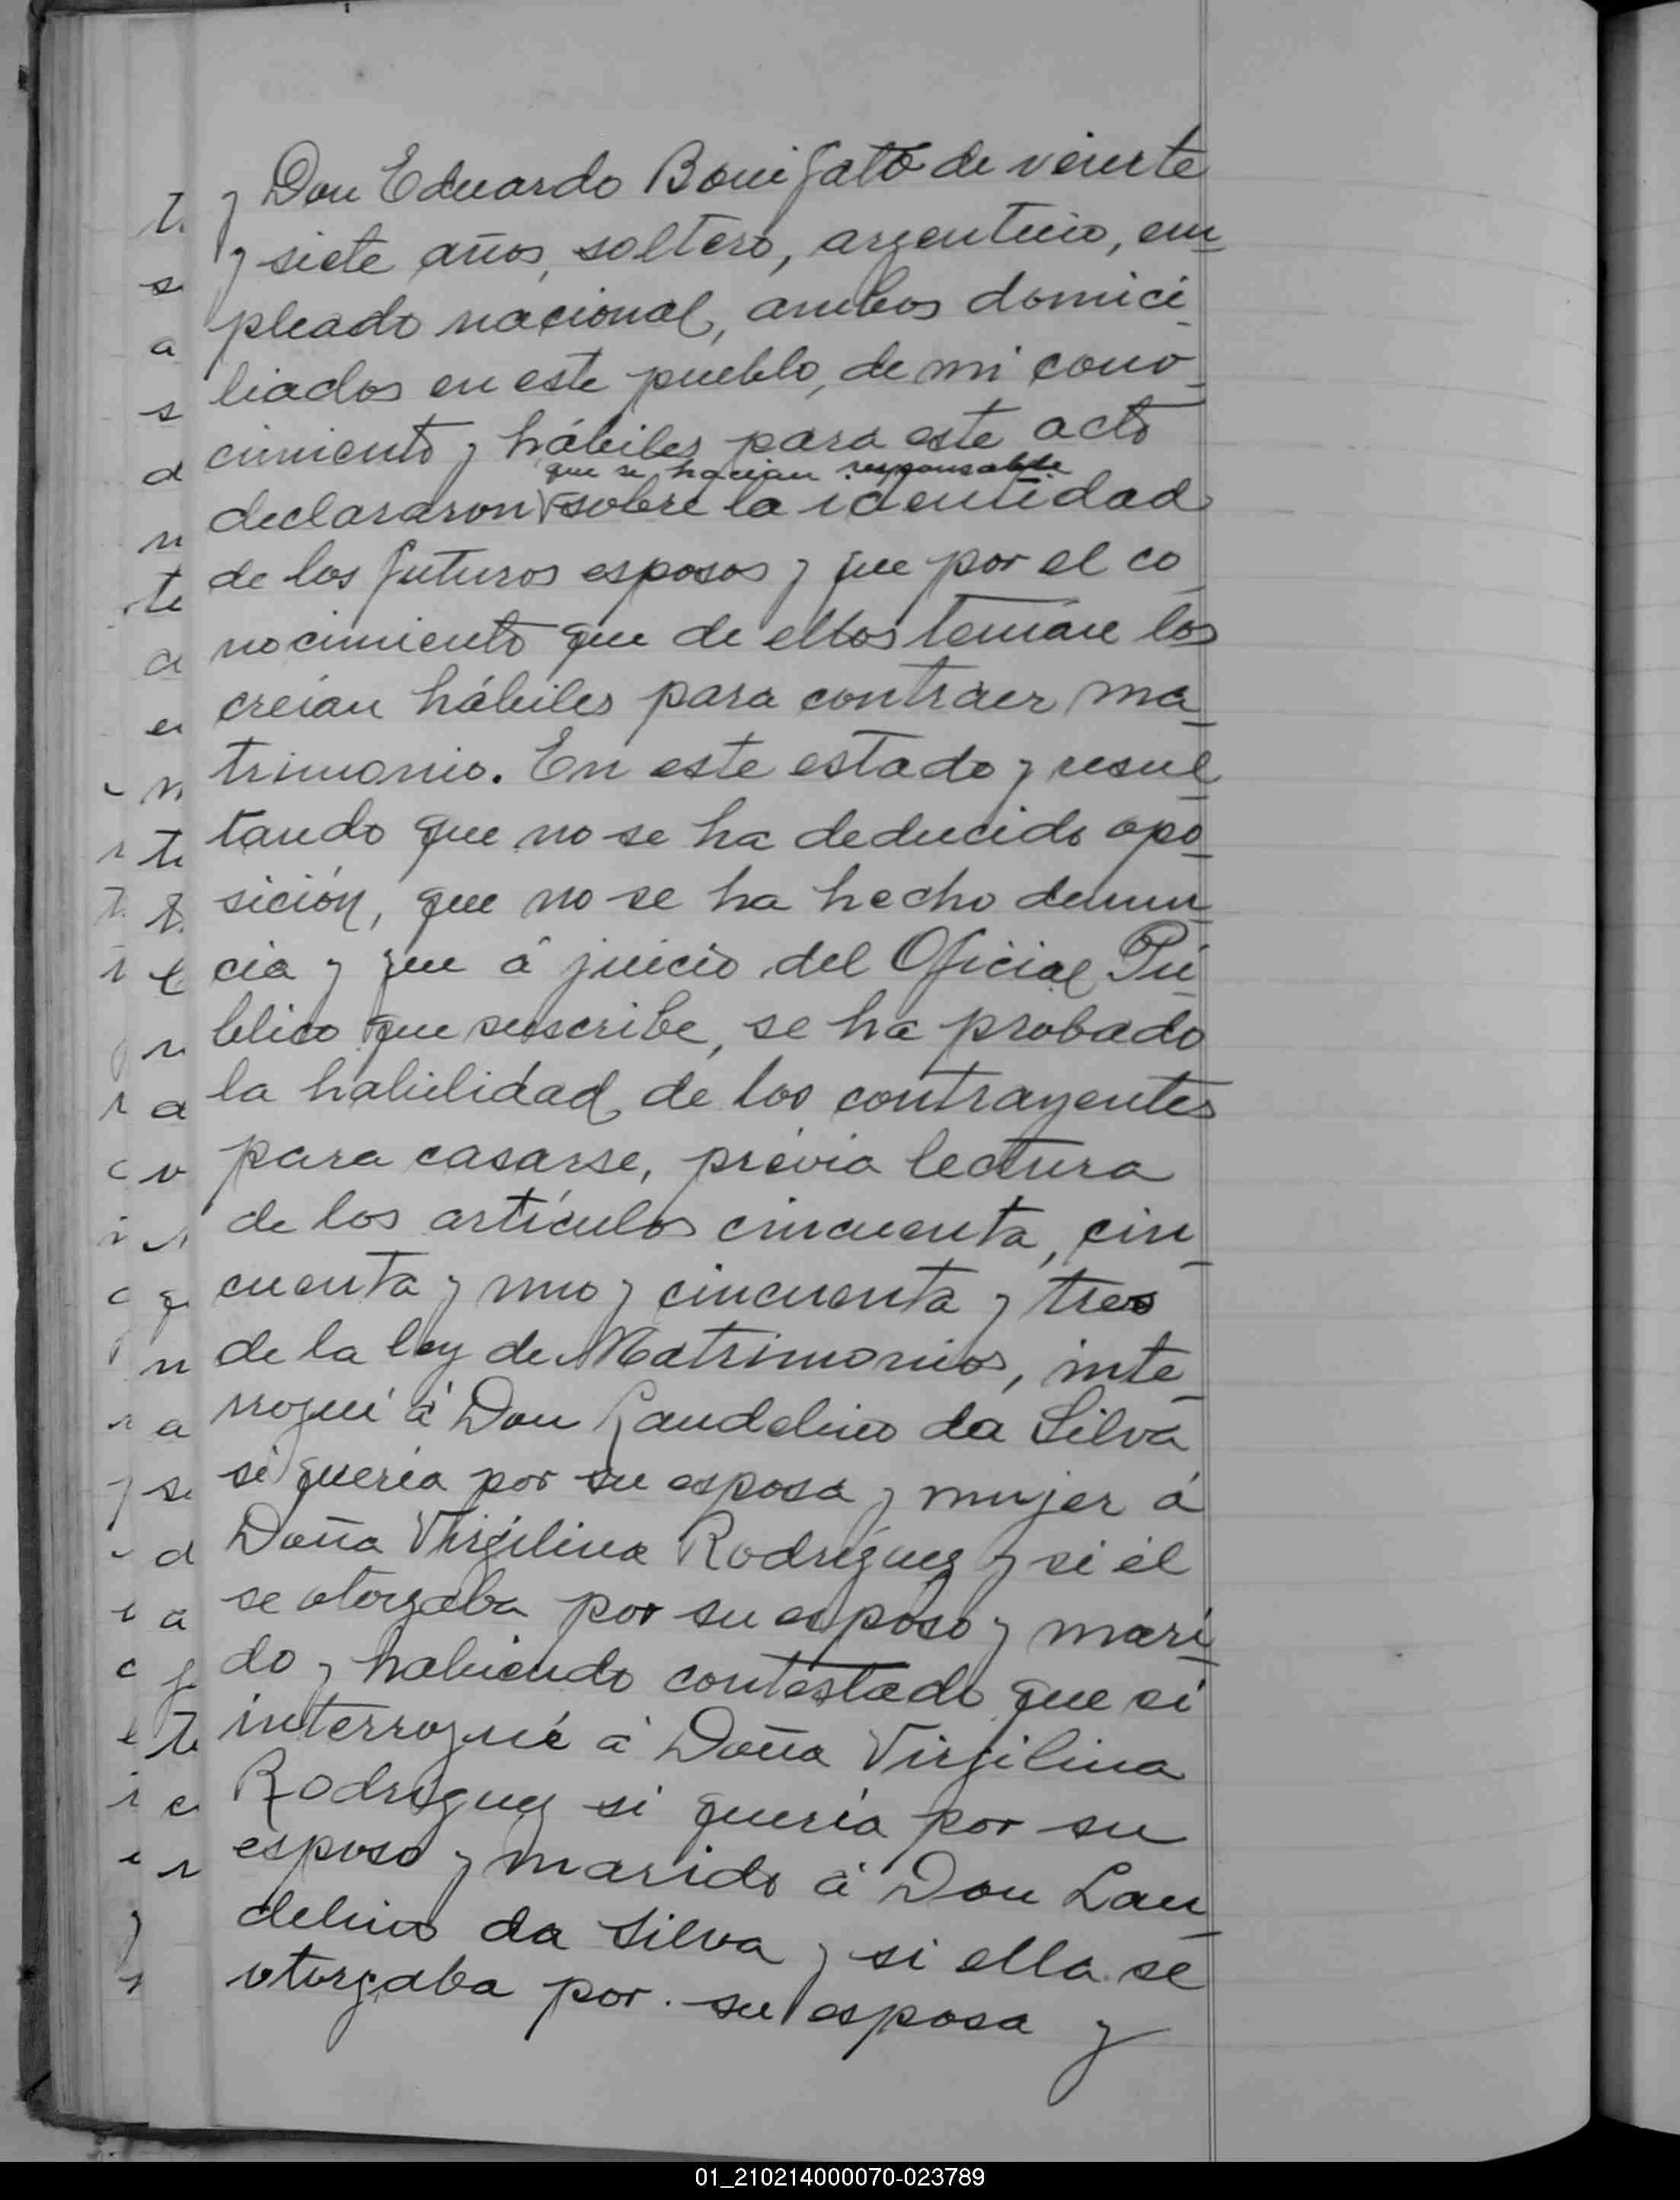 y Don Eduardo Bonifato de veinte
y siete años, soltero, argentino, em-
pleado nacional, ambos domici-
liados en este pueblo, de mi cono-
cimiento y hábiles para este acto
que se hacian responsable
declararon sobre la identidad
de los futuros esposos y que por el co-
nocimiento que de ellos tenían los
creian hábiles para contraer ma-
trimonio. En este estado y resul-
tando que no se ha deducido opo-
sición, que no se ha hecho denun-
cia y que á juicio del Oficial Pú-
blico que suscribe, se ha probado
la habilidad de los contrayentes
para casarse, prévia lectura
de los artículos cincuenta, cin-
cuenta y uno y cincuenta y tres
de la ley de Matrimonios, inte-
rrogué á Don Laudelino da Silva
si quería por su esposa y mujer á
Doña Virgilina Rodríguez y si él
se otorgaba por su esposo y mari-
do y habiendo contestado que si
interrogué á Doña Virgilina
Rodríguez si quería por su
esposo y marido á Don Lau-
delino da Silva y si ella se
otorgaba por su esposa y
01_210214000070-023789